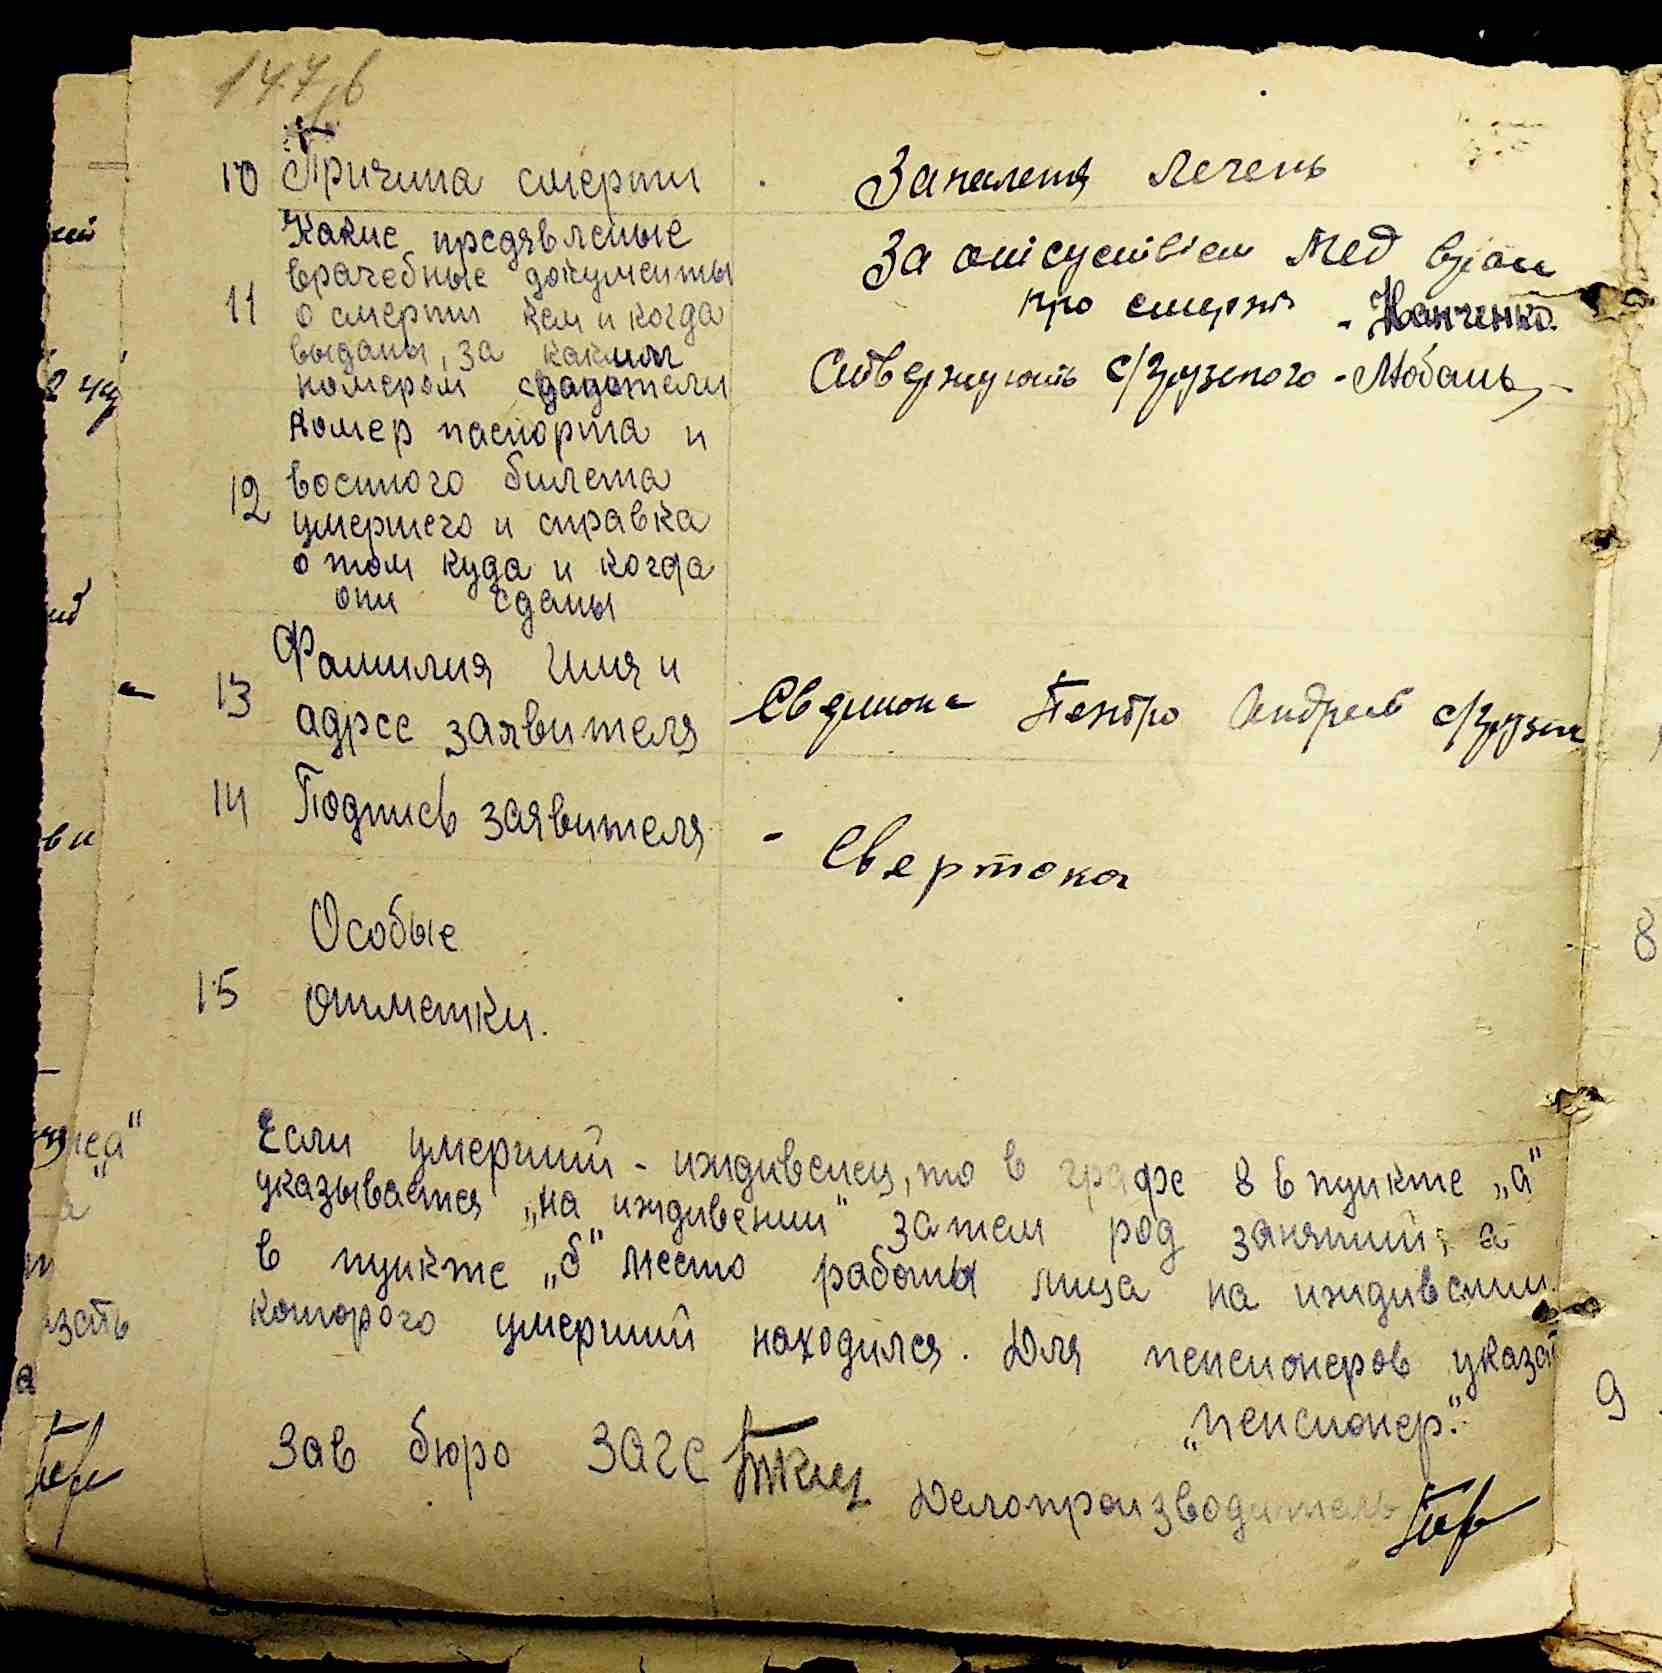 10 Причина смерти
Запалення Лечень
Какие предявленые
врачебные документы
11 о смерти кем и когда
выданы, за каким
номером
За отісуствієм Мед
про смерть -
Ствержують с/Грузского -
номер паспорта и
12 военного билета
умершего и справка
о том куда и когда
они сданы
13 Фамилия Имя и
адрес заявителя
Петро Андреев
14 Подпись заявителя
- Свертока
Особые
15 отметки.
Если умерший - иждивенец, то в графе 8 в пункте „а“
указывается „на иждивении“ затем род занятий, а
в пункте „б“ место работы лица на иждивении
которого умерший находился. Для пенсионеров указать
„пенсионер“.
Зав бюро ЗАГС
Делопроизводитель
8
9